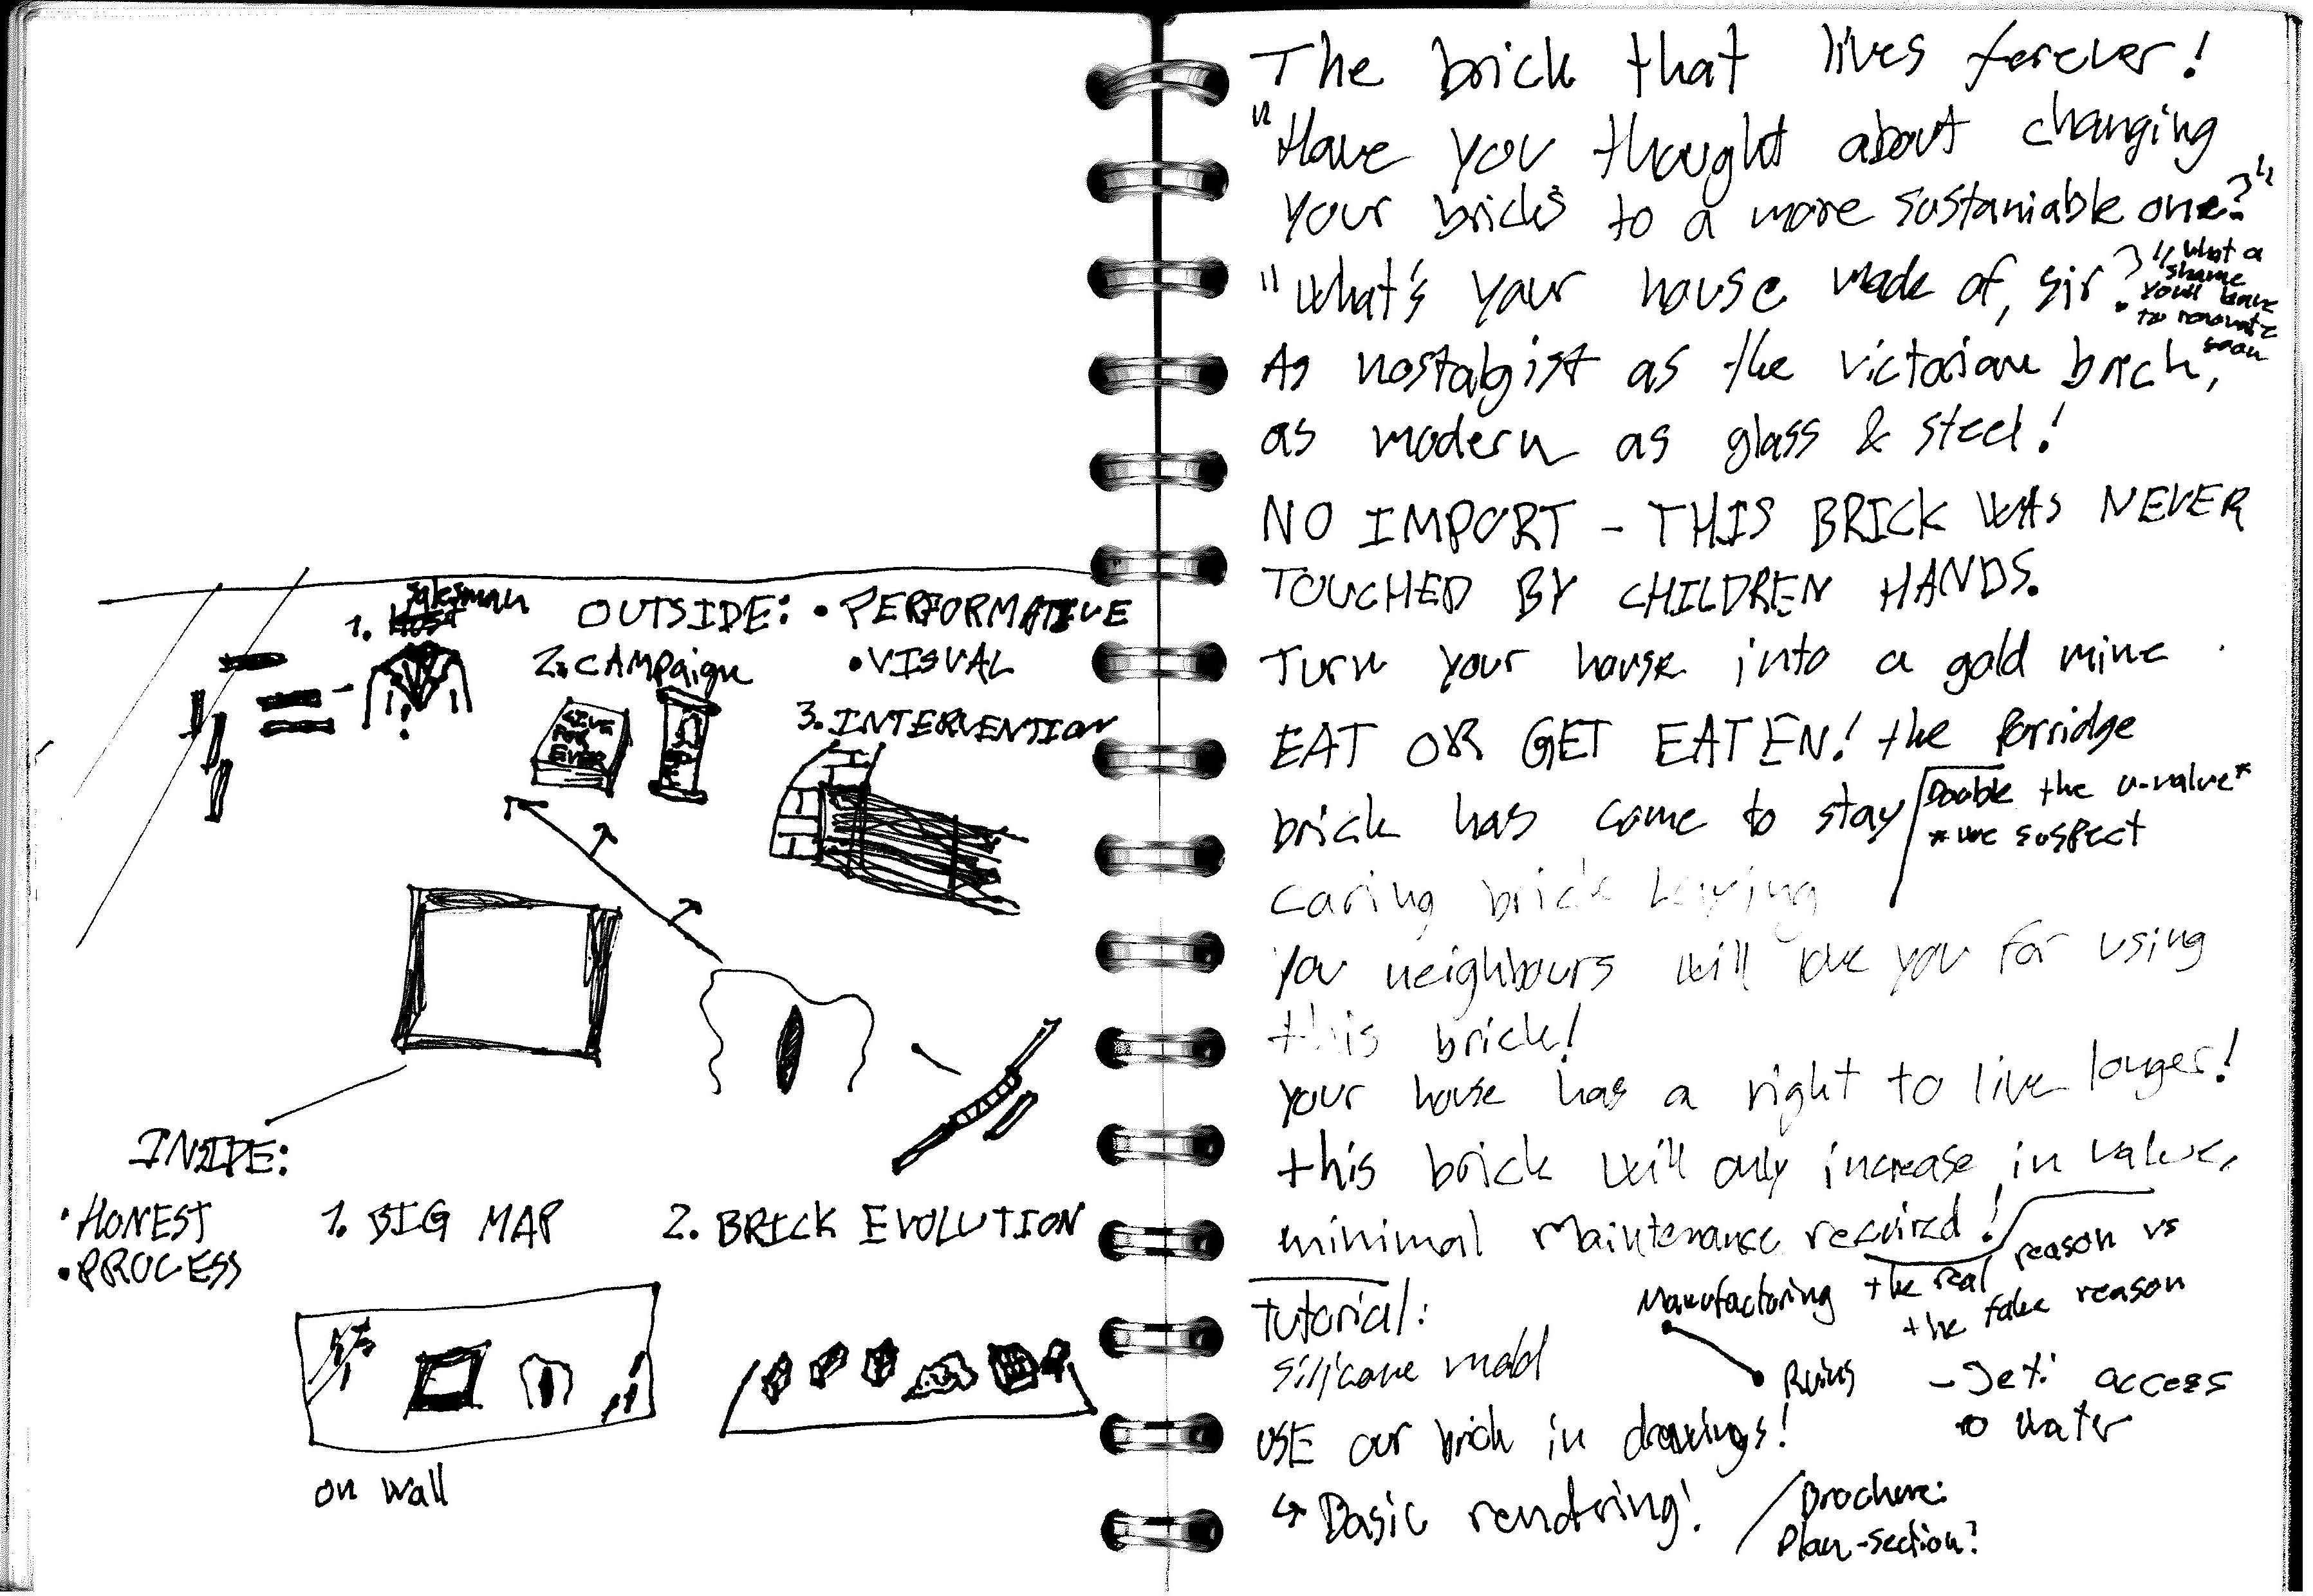 1. Salesman
OUTSIDE: • PERFORMATIVE
• VISUAL
2. CAMPaign
LIVE
FOR
EVER
3. INTERVENTION
INSIDE:
• HONEST
• PROCESS
1. BIG MAP
2. BRICK EVOLUTION
on wall
The brick that lives forever!
"Have you thought about changing
your bricks to a more sustaniable one?"
"What's your house made of, sir?"
What a
shame
you'll have
to renovate
soon
As nostalgist as the victorian brick,
as modern as glass & steel!
NO IMPORT - THIS BRICK WAS NEVER
TOUCHED BY CHILDREN HANDS.
Turn your house into a gold mine.
EAT OR GET EATEN! the Porridge
brick has come to stay
Double the u-value*
* we suspect
Caring brick laying
You neighbours will love you for using
this brick!
your house has a right to live longer!
this brick will only increase in value,
minimal maintenance required!
Manufacturing the real reason vs
the fake reason
Tutorial:
silicone mold
Ruins
- Jeti access
to water
USE our brick in drawings!
↳ Basic rendring!
Brochure:
Plan-section?